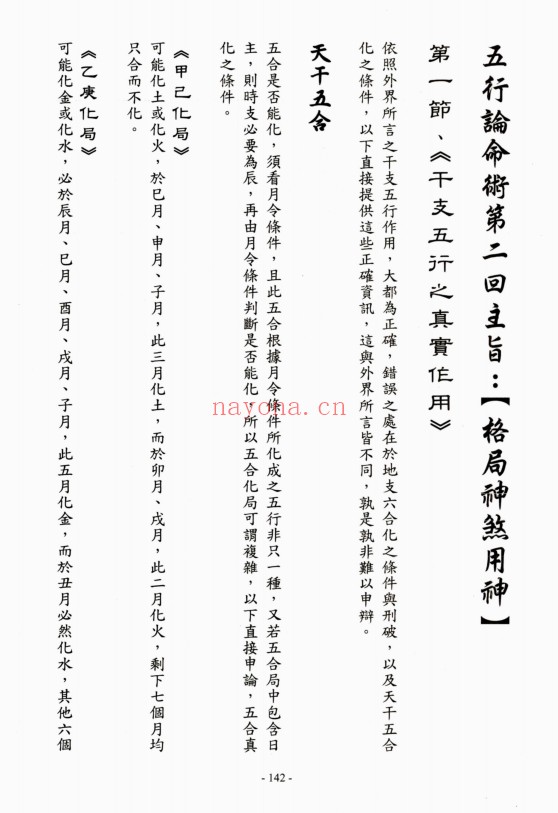 五行論命術第二回主旨：【格局神煞用神】
第一節、《干支五行之真實作用》
依照外界所言之干支五行作用，大都為正確，錯誤之處在於地支六合化之條件與刑破，以及天干五合
化之條件，以下直接提供這些正確資訊，這與外界所言皆不同，孰是孰非難以申辯。
天干五合
五合是否能化，須看月令條件，且此五合根據月令條件所化成之五行非只一種，又若五合局中包含日
主，則時支必要為辰，再由月令條件判斷是否能化，所以五合化局可謂複雜，以下直接申論，五合真
化之條件。
《甲己化局》
可能化土或化火，於巳月、申月、子月，此三月化土，而於卯月、戌月，此二月化火，剩下七個月均
只合而不化。
《乙庚化局》
可能化金或化水，必於辰月、巳月、酉月、戌月、子月，此五月化金，而於丑月必然化水，其他六個
- 142 -
nayona.cn